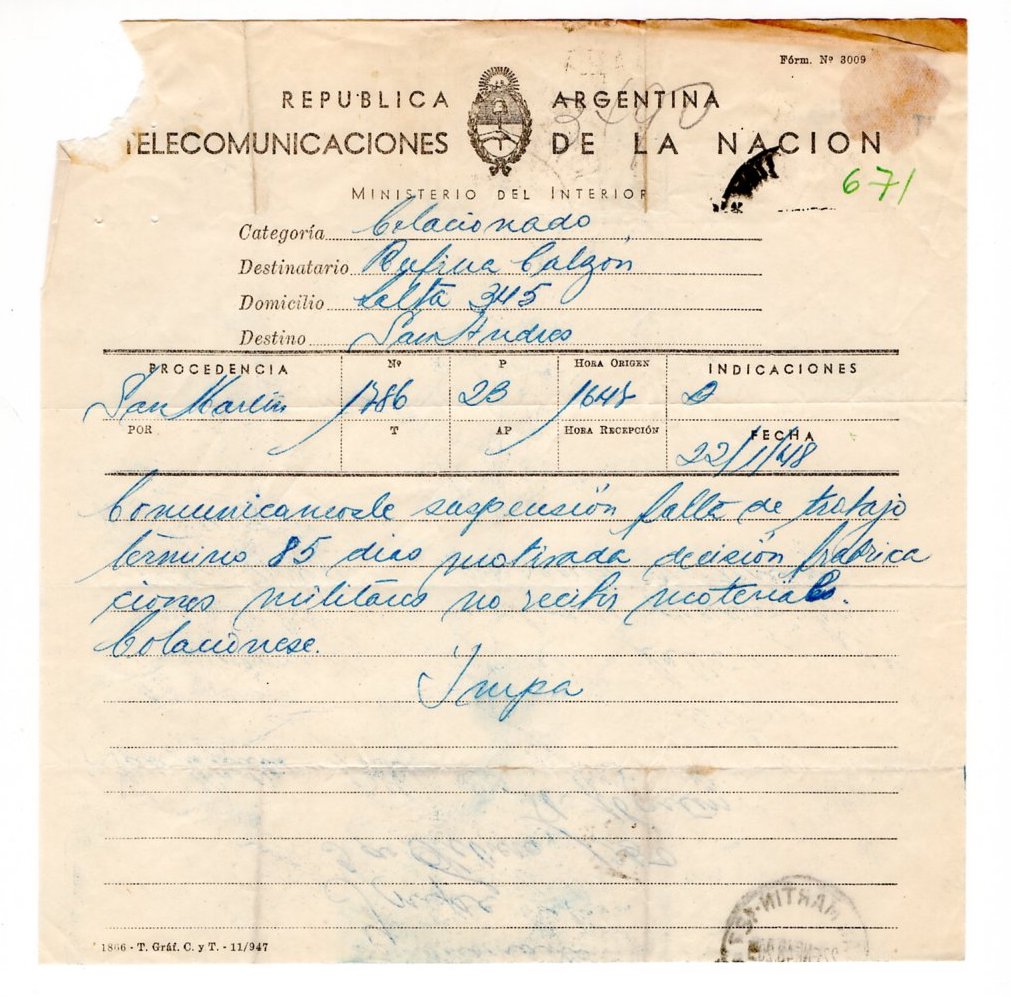 Fórm. Nº 3009
REPUBLICA ARGENTINA
3490
TELECOMUNICACIONES DE LA NACION
MINISTERIO DEL INTERIOR
671
Categoría Colacionado
Destinatario Rufina Calzón
Domicilio Salta 345
Destino San Andres
PROCEDENCIA Nº P HORA ORIGEN INDICACIONES
San Martin 1786 23 1647 D
POR T AP HORA RECEPCIÓN FECHA
22/1/48
Comunicamosle suspensión falta de trabajo
término 85 dias motivada decisión fabrica
ciones militares no recibir materiales.
Colacionese.
Impa
MARTIN
1866 - T. Gráf. C. y T. - 11/947